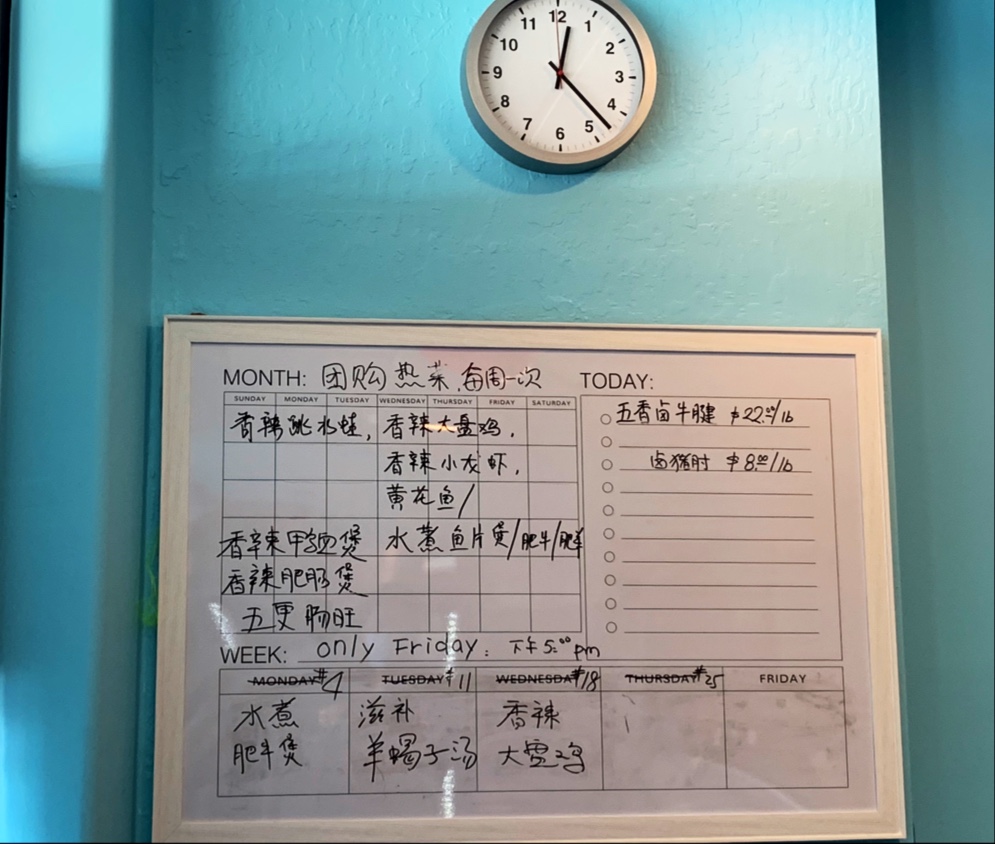 12
11 1
10 2
9 3
8 4
7 5
6
MONTH: 团购热菜,每周一次 TODAY:
SUNDAY MONDAY TUESDAY WEDNESDAY THURSDAY FRIDAY SATURDAY
香辣跳水蛙, 香辣大盘鸡,
香辣小龙虾,
黄花鱼/
香辣甲鱼煲 水煮鱼片煲/肥牛/肥羊
香辣肥肠煲
五更肠旺
五香卤牛腱 $22.00/lb
卤猪肘 $8.00/lb
WEEK: only Friday. 下午5:00pm
MONDAY #4 TUESDAY #11 WEDNESDA #18 THURSDAY #25 FRIDAY
水煮 滋补 香辣
肥牛煲 羊蝎子汤 大盘鸡